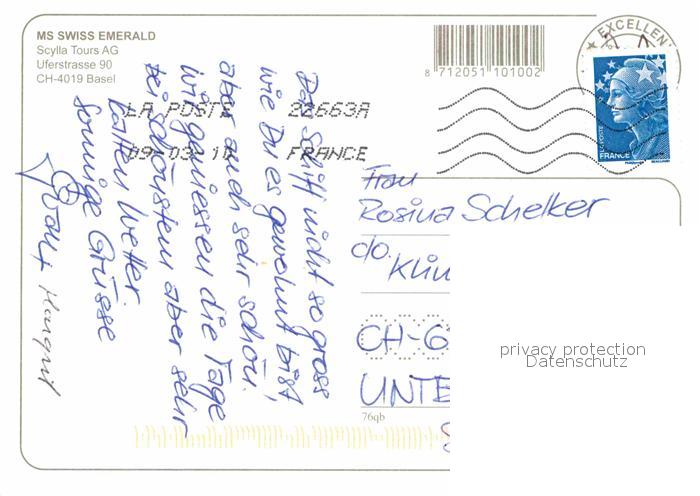 MS SWISS EMERALD
Scylla Tours AG
Uferstrasse 90
CH-4019 Basel
8 712051 101002
EXCELLEN
LA POSTE 22663A
09-03-10 FRANCE
LA POSTE
FRANCE
Das Schiff nicht so gross
wie Du es gewohnt bist,
aber auch sehr schön.
Wir geniessen die Tage
bei schönstem aber sehr
kalten Wetter.
Sonnige Grüsse
Margrit
Frau
Rosina Schelker
c/o. Klin
CH-6
UNTE
76qb
privacy protection
Datenschutz